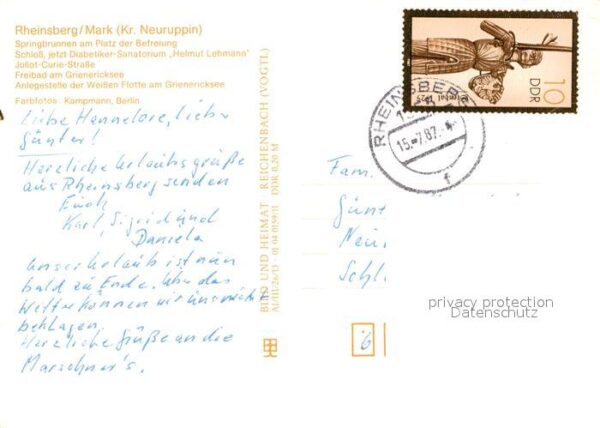 Rheinsberg/Mark (Kr. Neuruppin)
Springbrunnen am Platz der Befreiung
Schloß, jetzt Diabetiker-Sanatorium „Helmut Lehmann"
Joliot-Curie-Straße
Freibad am Grienericksee
Anlegestelle der Weißen Flotte am Grienericksee
Farbfotos Kampmann, Berlin
Liebe Hannelore, lieber
Günter!
Herzliche Urlaubsgrüße
aus Rheinsberg senden
Euch
Karl, Sigrid und
Daniela
Unser Urlaub ist nun
bald zu Ende. Über das
Wetter können wir uns nicht
beklagen.
Herzliche Grüße an die
Marschner's.
BILD UND HEIMAT REICHENBACH (VOGTL)
A1/III/26/13 01 04 0159/11 DDR 0,20 M
10
DDR
1525
RHEINSBERG
15.-7.87
f
Fam.
Günt
Neu
Schl.
privacy protection
Datenschutz
6